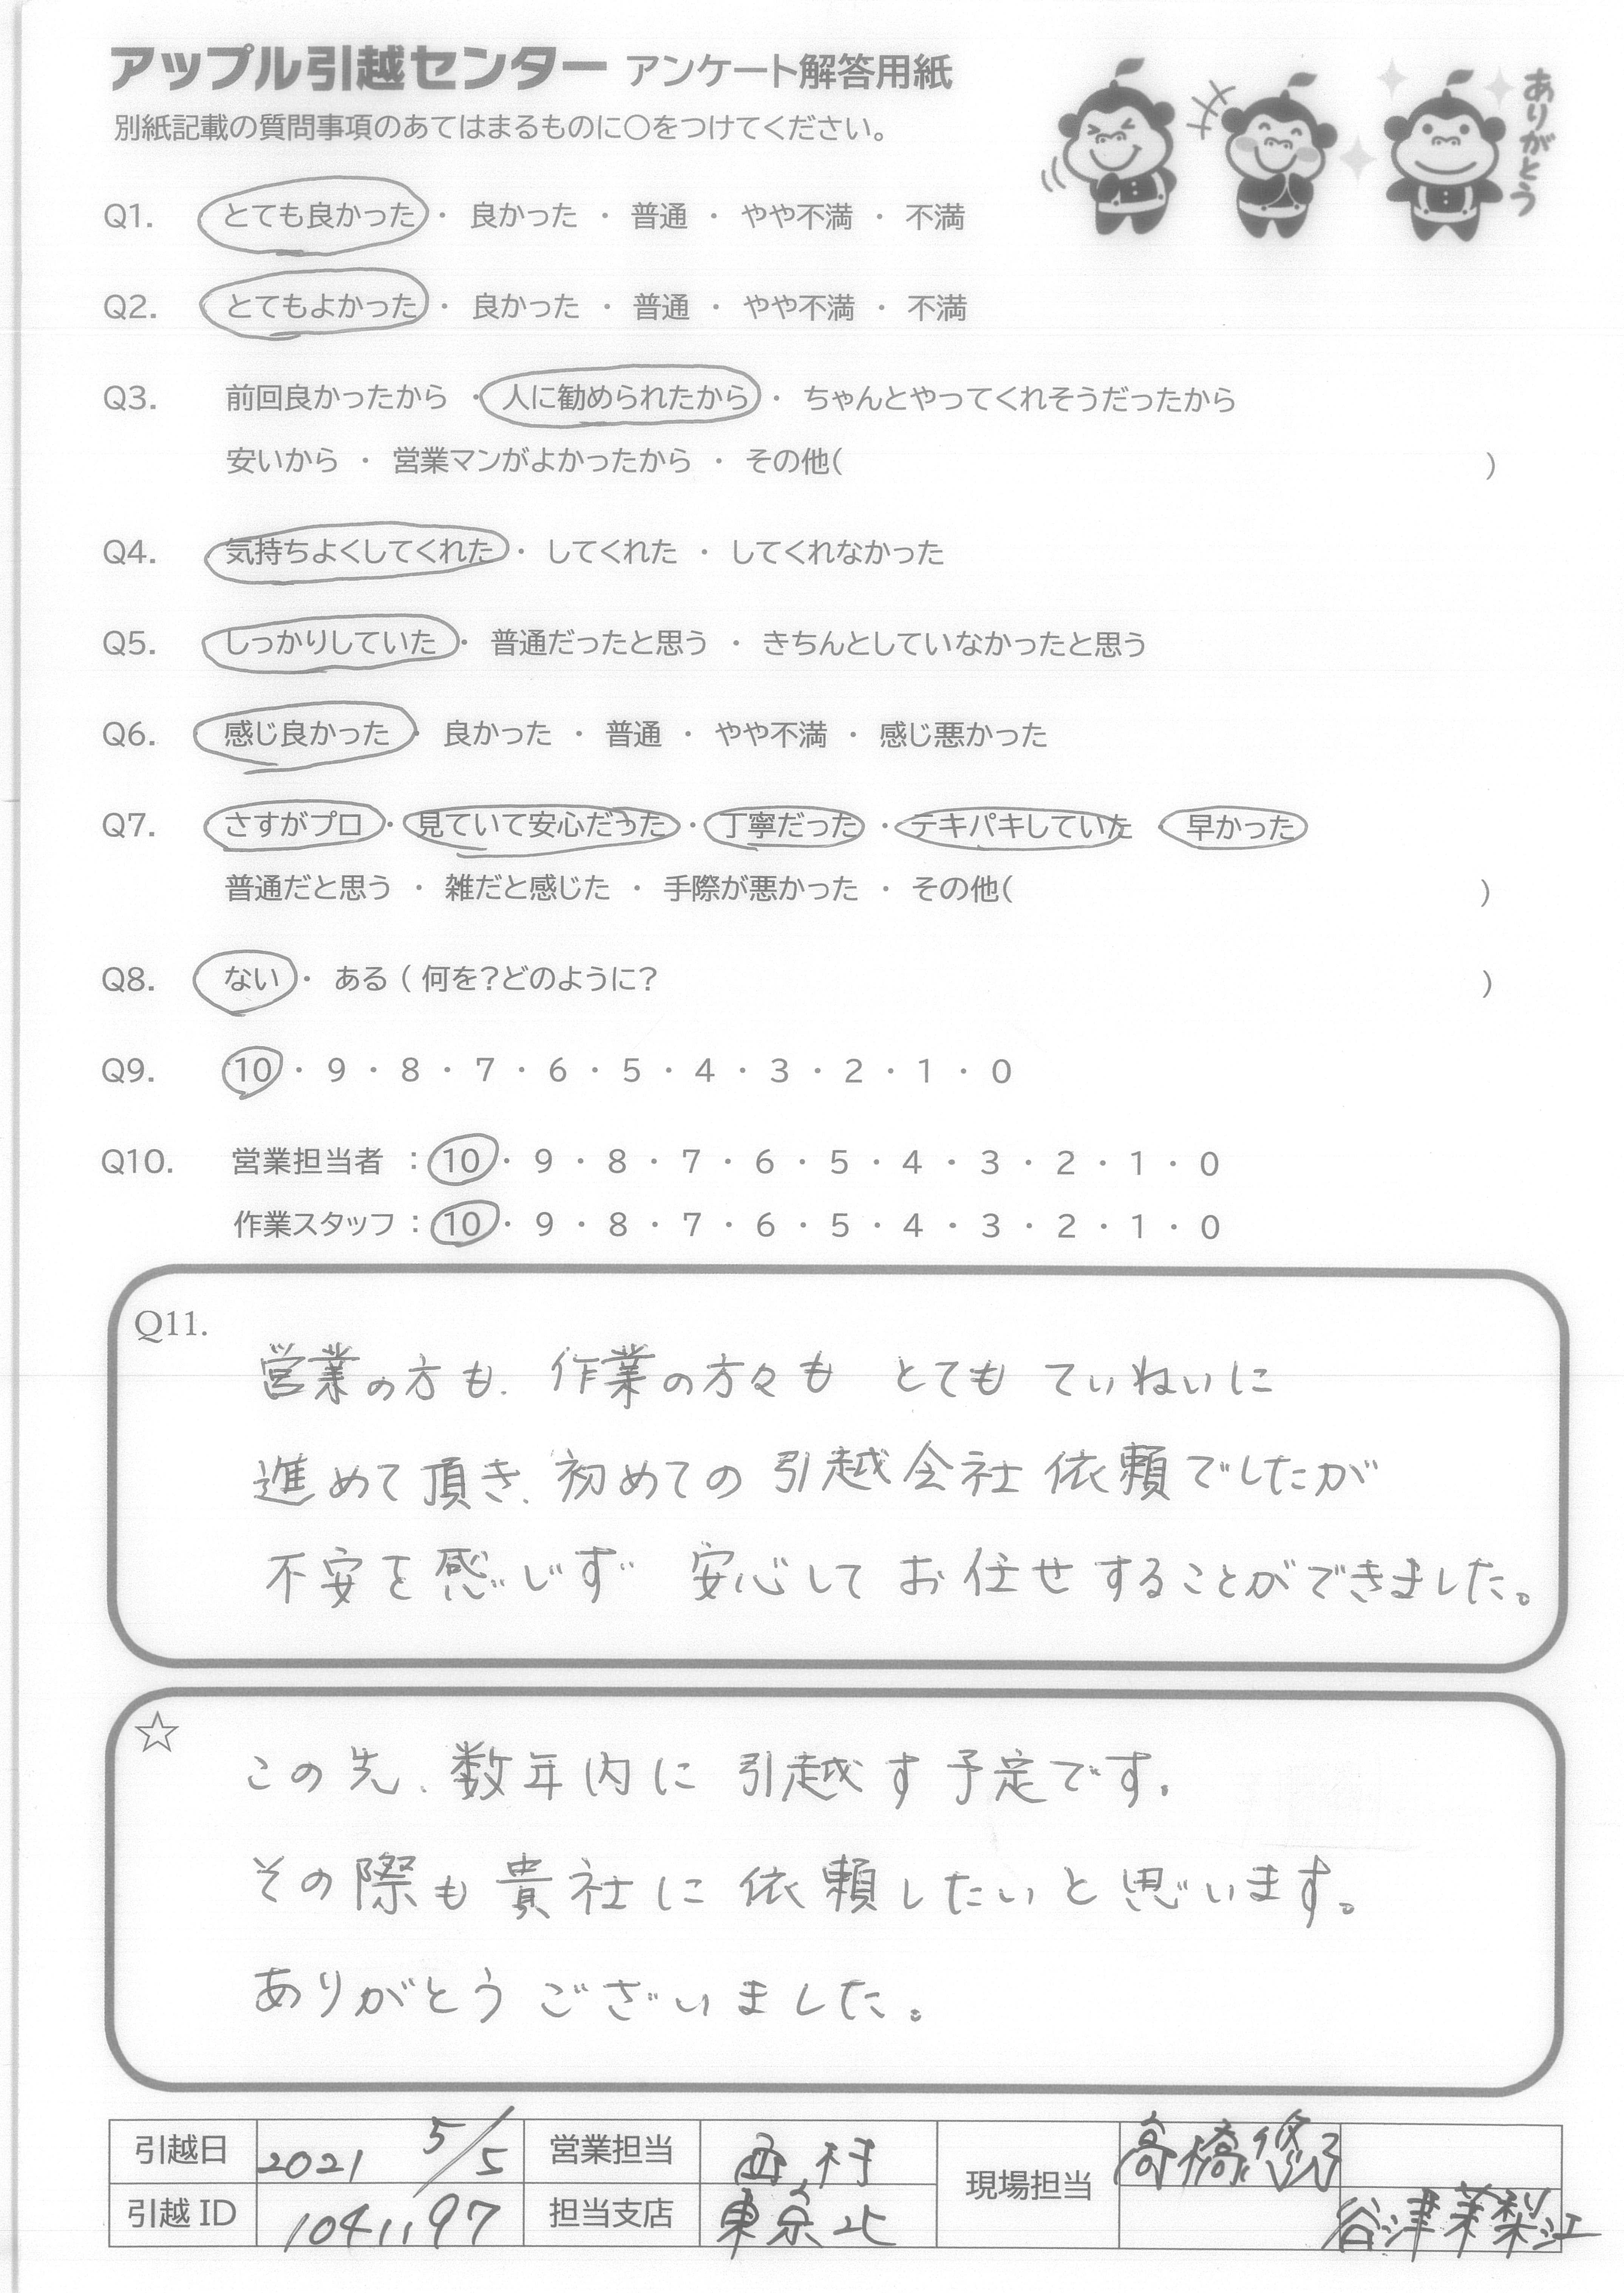 アップル引越センター アンケート解答用紙
別紙記載の質問事項のあてはまるものに○をつけてください。
ありがとう
Q1. とても良かった ・ 良かった ・ 普通 ・ やや不満 ・ 不満
Q2. とてもよかった ・ 良かった ・ 普通 ・ やや不満 ・ 不満
Q3. 前回良かったから ・ 人に勧められたから ・ ちゃんとやってくれそうだったから
安いから ・ 営業マンがよかったから ・ その他( )
Q4. 気持ちよくしてくれた ・ してくれた ・ してくれなかった
Q5. しっかりしていた ・ 普通だったと思う ・ きちんとしていなかったと思う
Q6. 感じ良かった ・ 良かった ・ 普通 ・ やや不満 ・ 感じ悪かった
Q7. さすがプロ ・ 見ていて安心だった ・ 丁寧だった ・ テキパキしていた ・ 早かった
普通だと思う ・ 雑だと感じた ・ 手際が悪かった ・ その他( )
Q8. ない ・ ある ( 何を?どのように? )
Q9. 10 ・ 9 ・ 8 ・ 7 ・ 6 ・ 5 ・ 4 ・ 3 ・ 2 ・ 1 ・ 0
Q10. 営業担当者 : 10 ・ 9 ・ 8 ・ 7 ・ 6 ・ 5 ・ 4 ・ 3 ・ 2 ・ 1 ・ 0
作業スタッフ : 10 ・ 9 ・ 8 ・ 7 ・ 6 ・ 5 ・ 4 ・ 3 ・ 2 ・ 1 ・ 0
Q11.
営業の方も、作業の方々も とても ていねいに
進めて頂き、初めての 引越会社 依頼でしたが
不安を感じず 安心して お任せすることができました。
☆
この先、数年内に 引越す予定です。
その際も貴社に 依頼したいと思います。
ありがとうございました。
引越日 2021 5/5 営業担当 西村 現場担当 高橋悠
引越 ID 1041197 担当支店 東京北 谷津茉梨江